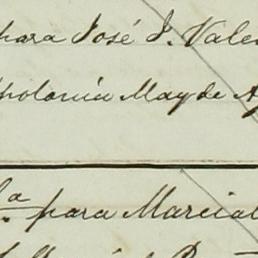 para José J. Vale
Apolonia May de A
l.ª para Marcial